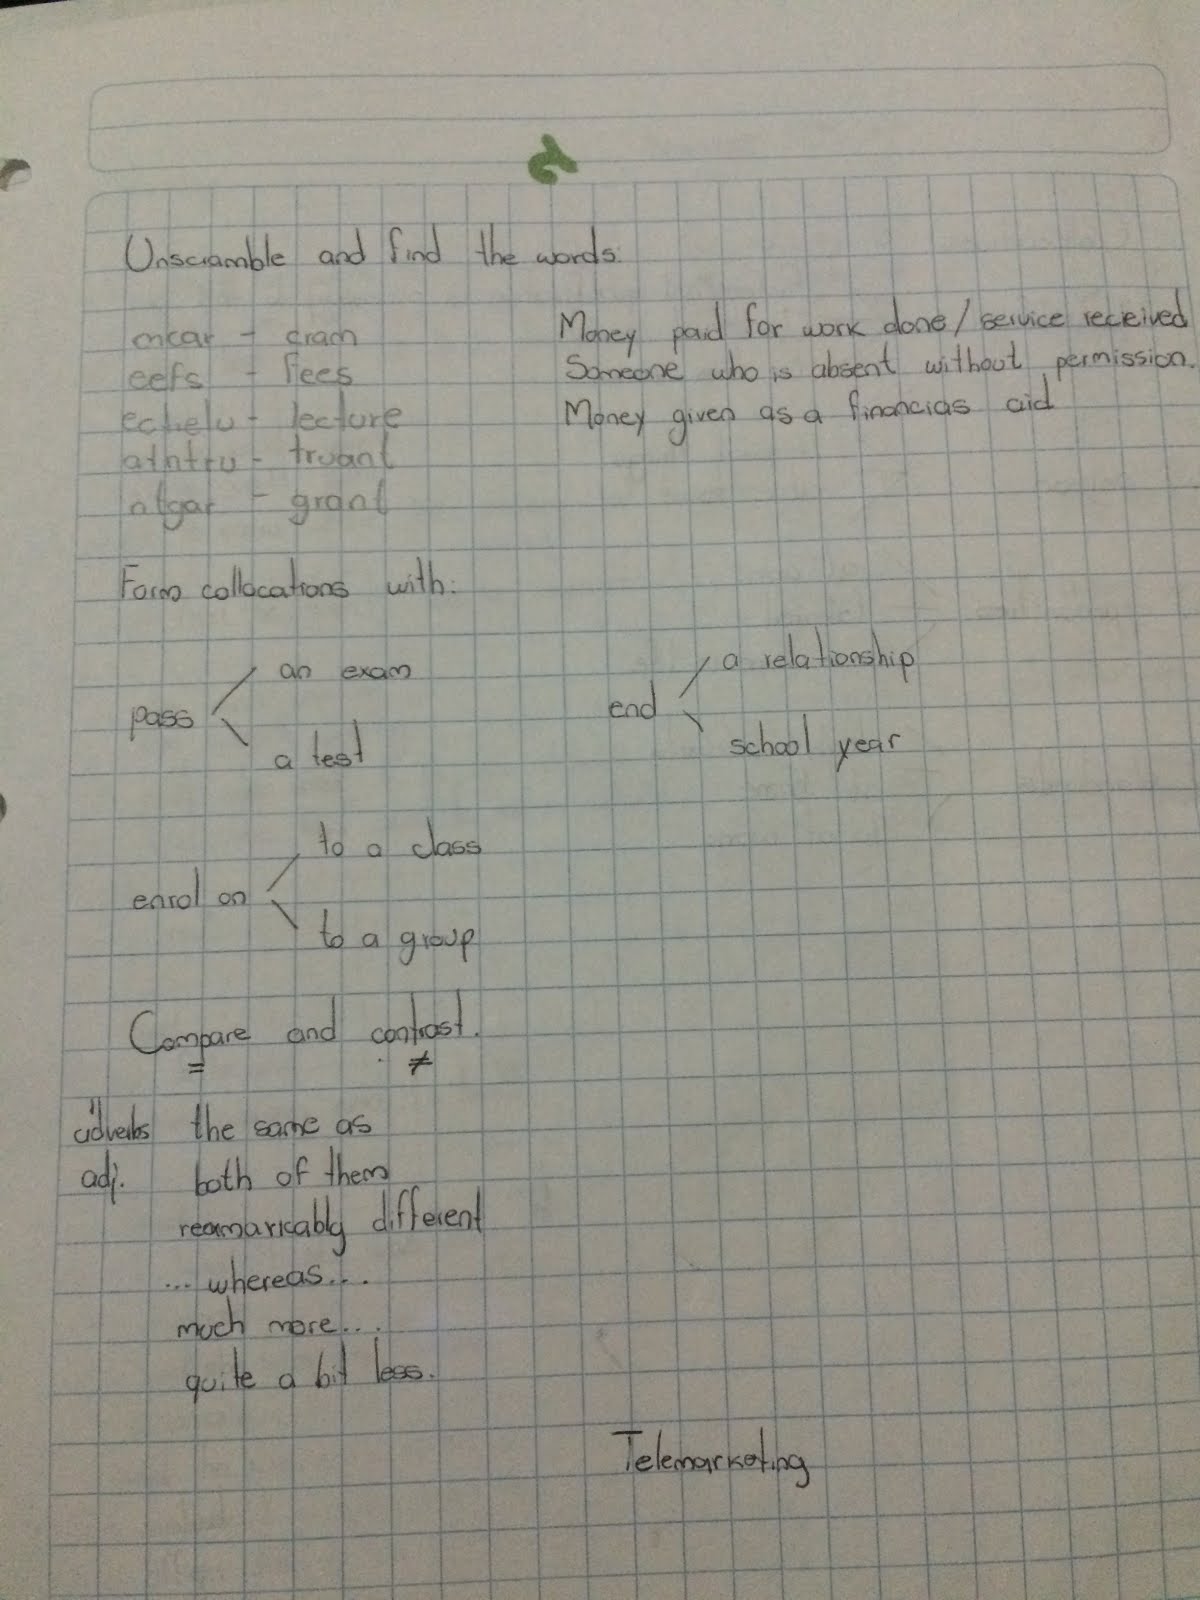 Unscramble and find the words:
mcar - cram
eefs - fees
echelu - lecture
athttu - truant
ntgar - grant
Money paid for work done / service received
Someone who is absent without permission.
Money given as a financias aid
Form collocations with:
pass
an exam
a test
end
a relationship
school year
enrol on
to a class
to a group
Compare and contrast.
= ≠
adverbs the same as
adj. both of them
reamarkably different
... whereas....
much more....
quite a bit less.
Telemarketing